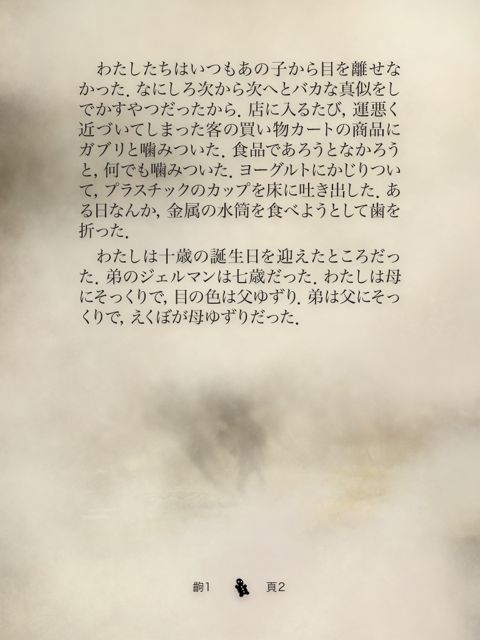 わたしたちはいつもあの子から目を離せな
かった．なにしろ次から次へとバカな真似をし
でかすやつだったから．店に入るたび，運悪く
近づいてしまった客の買い物カートの商品に
ガブリと噛みついた．食品であろうとなかろう
と，何でも噛みついた．ヨーグルトにかじりつい
て，プラスチックのカップを床に吐き出した．あ
る日なんか，金属の水筒を食べようとして歯を
折った．
わたしは十歳の誕生日を迎えたところだっ
た．弟のジェルマンは七歳だった．わたしは母
にそっくりで，目の色は父ゆずり．弟は父にそっ
くりで，えくぼが母ゆずりだった．
齣1 頁2